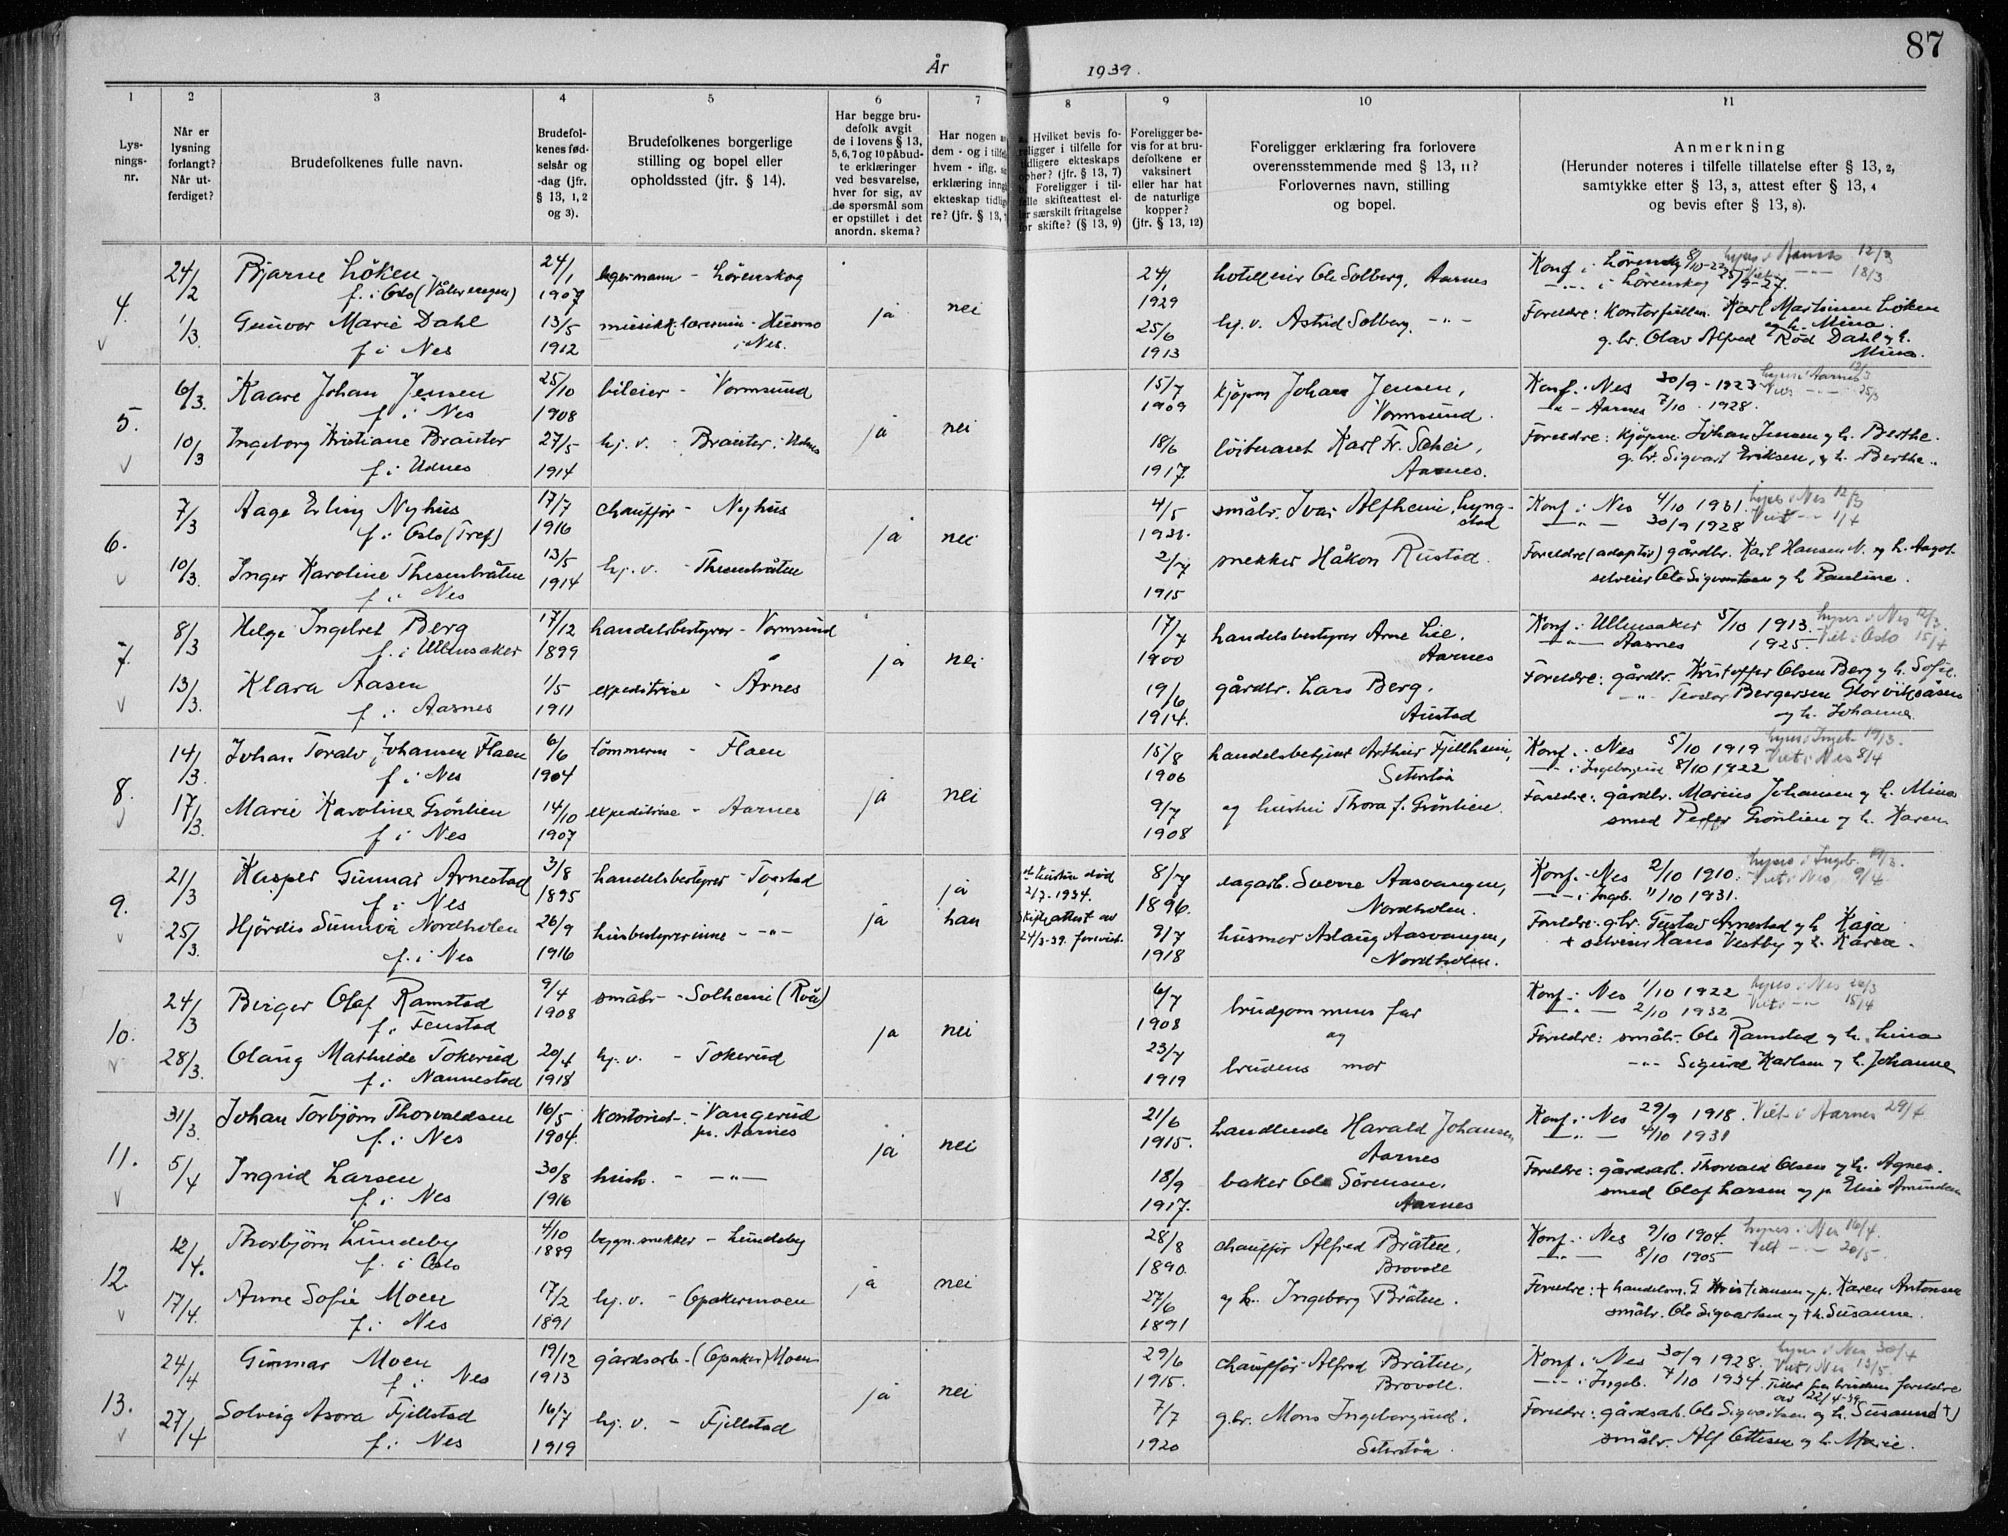 87
År 1939.
1 2 3 4 5 6 7 8 9 10 11
Lysningsnr.
Når er lysning forlangt? Når utferdiget?
Brudefolkenes fulle navn.
Brudefolkenes fødselsår og -dag (jfr. § 13, 1, 2 og 3).
Brudefolkenes borgerlige stilling og bopel eller opholdssted (jfr. § 14).
Har begge brudefolk avgit de i lovens § 13, 5, 6, 7 og 10 påbudte erklæringer ved besvarelse, hver for sig, av de spørsmål som er opstillet i det anordn. skema?
Har nogen av dem - og i tilfelle hvem - iflg. erklæring inngått ekteskap tidligere? (jfr. § 13,
Hvilket bevis foreligger i tilfelle for tidligere ekteskaps ophør? (jfr. § 13, 7) Foreligger i tilfelle skifteattest eller særskilt fritagelse for skifte? (§ 13, 9)
Foreligger bevis for at brudefolkene er vaksinert eller har hat de naturlige kopper? (jfr. § 13, 12)
Foreligger erklæring fra forlovere overensstemmende med § 13, 11? Forlovernes navn, stilling og bopel.
Anmerkning
(Herunder noteres i tilfelle tillatelse efter § 13, 2, samtykke efter § 13, 3, attest efter § 13, 4 og bevis efter § 13, 8).
4. 24/2 Bjarne Løken 24/1 1907 - Lørenskog
f. i Oslo (Vålerengen)
1/3 Gunvor Marie Dahl 13/5 1912 musikklærerinne
f. i Nes i Nes.
ja nei
24/1 1929 hotelleier Ole Solberg, Aarnes
25/6 1913 hj. v. Astrid Solberg, -"-
Konf. i Lørenskog
-"- i Lørenskog
Foreldre: Karl Martinsen Løken og h. Mina.
g.br. Olav Alfred Rød Dahl og h. Mina.
5. 6/3. Kaare Johan Jensen 25/10 1908 bileier - Vormsund
f. i Nes
10/3 Ingeborg Kristiane Brauter 27/5 1914 hj. v. - Brauter i Udnes
f. i Udnes
ja nei
15/7 1909 kjøpm Johan Jensen, Vormsund.
18/6 1917. løitnant Karl Fr. Aarnes.
Konf. i Nes 30/9 - 1923
-"- Aarnes 7/10 . 1928.
Foreldre: kjøpm. Johan Jensen og h. Berthe.
g. br. Sigvart Eriksen, og h. Berthe.
6. 7/3 Aage Erling Nyhus 17/7 1916 chauffør - Nyhus
f. i Oslo (Tref)
10/3. Inger Karoline Thesenbråten 13/5 1914 hj. v. - Thesenbråten
f. i Nes
ja nei
4/5 1931. småbr. Ivar Alfheim,
2/7 1915 snekker Håkon Rustad.
Konf. i Nes 4/10 1931.
-"- 30/9 1928
Foreldre (adoptiv) gårdbr. Karl Hansen N. og h. Aagot.
selveier Ole Sigvartsen og h Pauline.
7. 8/3 Helge Ingebret Berg 17/12 1899 handelsbestyrer - Vormsund
f. i Ullensaker
13/3. Klara Aasen 1/5 1911 expeditrise - Årnes
f. i Aarnes
ja nei
17/7 1900 handelsbestyrer Arne Lie, Aarnes
19/6 1914. gårdbr. Lars Berg, Austad
Konf. i Ullensaker 5/10 1913.
-"- Aarnes 1925.
Foreldre: gårdbr. Kristoffer Olsen Berg og h. Sofie.
-"- Teodor Bergersen og h. Johanne
8. 14/3. Johan Toralv Johansen Flaen 6/6 1904 tømmerm - Flaen
f. i Nes
17/3. Marie Karoline Grønlien 14/10 1907 expeditrise - Aarnes
f. i Nes
ja nei
15/8 1906 handelsbetjent Arthur Fjellheim, Seterstøa
9/7 1908 og hustru Thora f. Grønlien.
Konf. i Nes 5/10 1919
8/10 1922
Foreldre: gårdbr. Marius Johansen og h. Mina
smed Peder Grønlien og h. Karen
9. 21/3 Kasper Gunnar Arnestad 3/8 1895 handelsbestyrer -
f. i Nes
25/3. Hjørdis Sunniva Nordholen 26/9 1916 husbestyrerinne -"-
f. i Nes
ja ja han
hustru død 2/7-1934. Skifteattest av 24/3-39.
8/7 1896. sagarb. Sverre Aasvangen, Nordholen.
9/7 1918 husmor Aslaug Aasvangen, Nordholen.
Konf. i Nes 2/10 1910.
-"- i Ingeb. 11/10 1931.
Foreldre: gbr. Gustav Arnestad og h. Kaja
+ selveier Hans Vestby og h. Karen.
10. 24/3 Birger Olaf Ramstad 9/4 1908 småbr - Solheim (Roa)
f. i Fenstad
28/3. Olaug Mathilde Tokerud 20/4 1918 hj. v. - Tokerud
f. i Nannestad
ja nei
6/7 1908 brudgommens far
og
23/7 1919 brudens mor
Konf. i Nes 1/10 1922
-"- 2/10 1932
Foreldre: småbr. Ole Ramstad og h. Lina
-"- Sigurd Karlsen og h. Johanne
11. 31/3. Johan Torbjørn Thorvaldsen 16/5 1904. kontorist - Vangerud pr. Aarnes
f. i Nes
5/4 Ingrid Larsen 30/8 1916 hush. -"-
f. i Nes
ja nei
21/6 1915. handlende Harald Johansen Aarnes
18/9 1917. baker Ole Sørensen, Aarnes
Konf. i Nes 29/9 1918. Viet i Aarnes 29/4
-"- 4/10 1931
Foreldre: gårdsarb. Thorvald Olsen og h. Agnes.
smed Olaf Larsen og p. Elise Amundsen
12. 12/4. Thorbjørn Lundeby 4/10 1889 bygn.snekker - Lundeby
f. i Oslo
17/4. Anne Sofie Moen 17/2 1891 hj. v. - Opakermoen
f. i Nes
ja nei
28/8 1890. chauffør Alfred Bråten, Brovoll
27/6 1891 og h. Ingeborg Bråten.
Konf. i Nes 9/10 1904.
-"- 8/10 1905
Foreldre: + handelsm. G Kristiansen og p. Karen Antonsen
småbr. Ole Sigvartsen og + h. Susanne.
13. 24/4 Gunnar Moen 19/12 1913 gårdsarb. - (Opaker) Moen
f. i Nes
27/4 Solveig Asora Fjellstad 16/7 1919 hj. v. - Fjellstad
f. i Nes
ja nei
29/6 1915. chauffør Alfred Bråten, Brovoll.
7/7 1920 g.br. Mons Ingeborgrud, Seterstøa.
Konf. i Nes 30/9 1928. Viet i Nes 13/5.
-"- i Ingeb. 7/10 1934. Tillat. fra brudens foreldre av 22/4-39
Foreldre: gårdsarb. Ole Sigvartsen og h. Susanne (+)
småbr. Alf Ottesen og h. Marie.